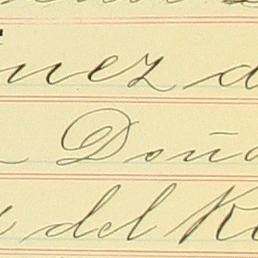 nez d
Doña
del R